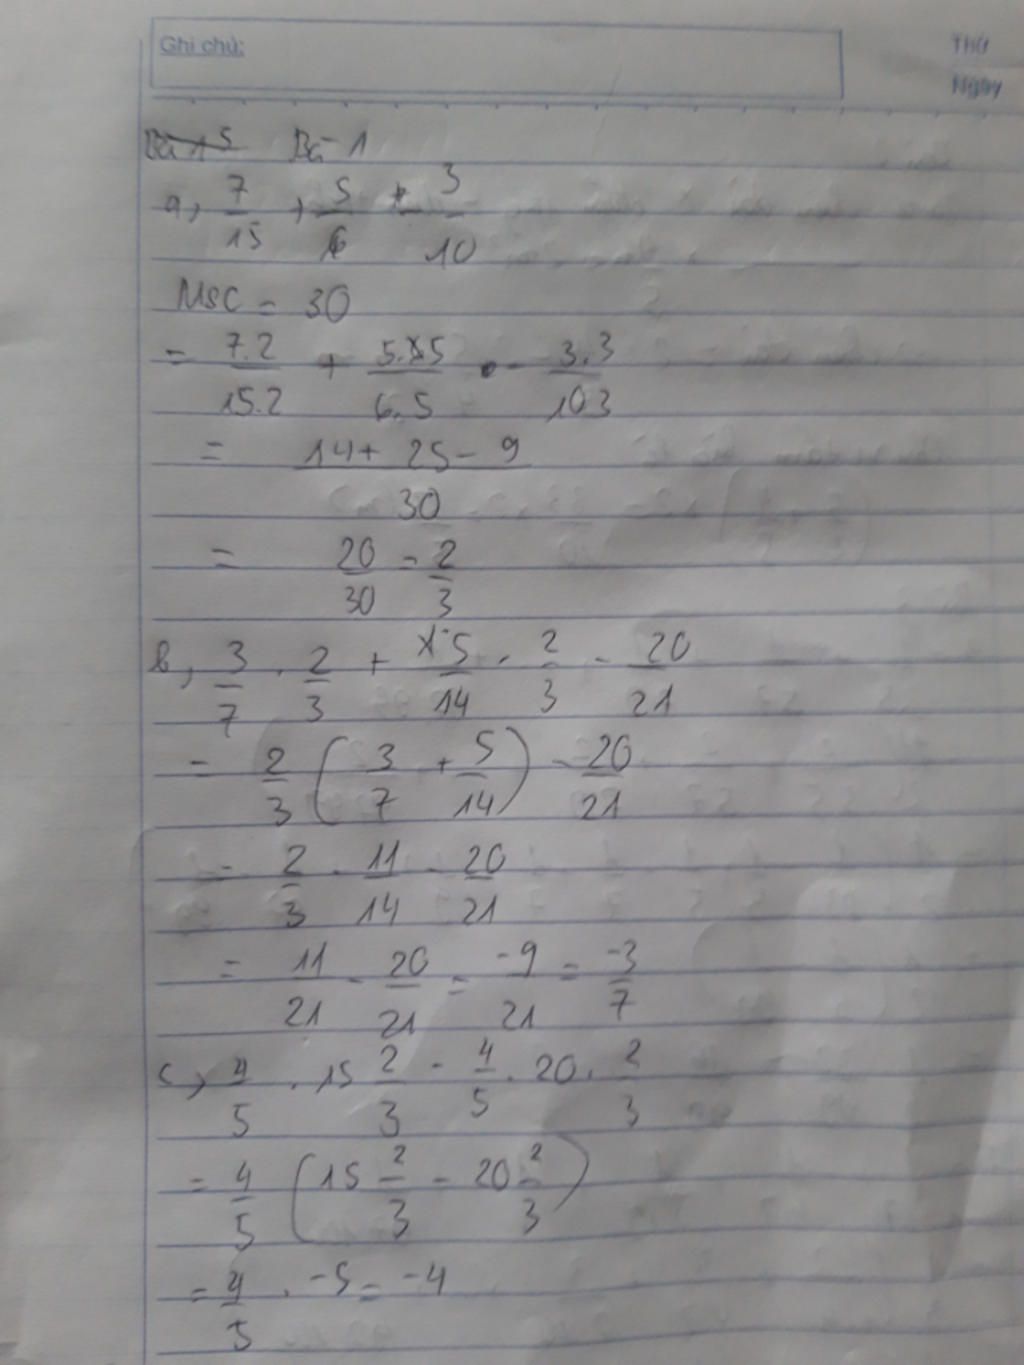 Ghi chú:
Thứ
Ngày
Bài 1
a, 7/15 + 5/6 - 3/10
MSC = 30
= 7.2/15.2 + 5.5/6.5 - 3.3/10.3
= 14 + 25 - 9/30
= 20/30 = 2/3
b, 3/7 . 2/3 + 5/14 . 2/3 - 20/21
= 2/3 (3/7 + 5/14) - 20/21
= 2/3 . 11/14 - 20/21
= 11/21 - 20/21 = -9/21 = -3/7
c, 4/5 . 15 2/3 - 4/5 . 20 . 2/3
= 4/5 (15 2/3 - 20 2/3)
= 4/5 . -5 = -4